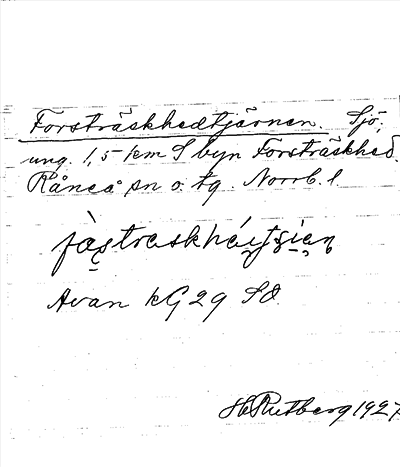 Forsträskhedtjärnen. Sjö,
ung. 1,5 km S byn Forsträskhed.
Råneå sn o. tg. Norrb. l.
Avan kG 29 SO.
H Rutberg 1927